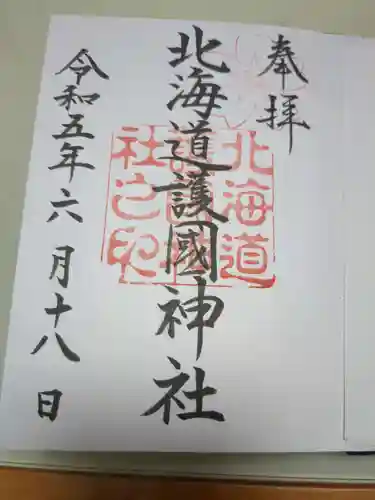 奉拝
北海道護國神社
北海道
護國神
社之印
令和五年六月十八日